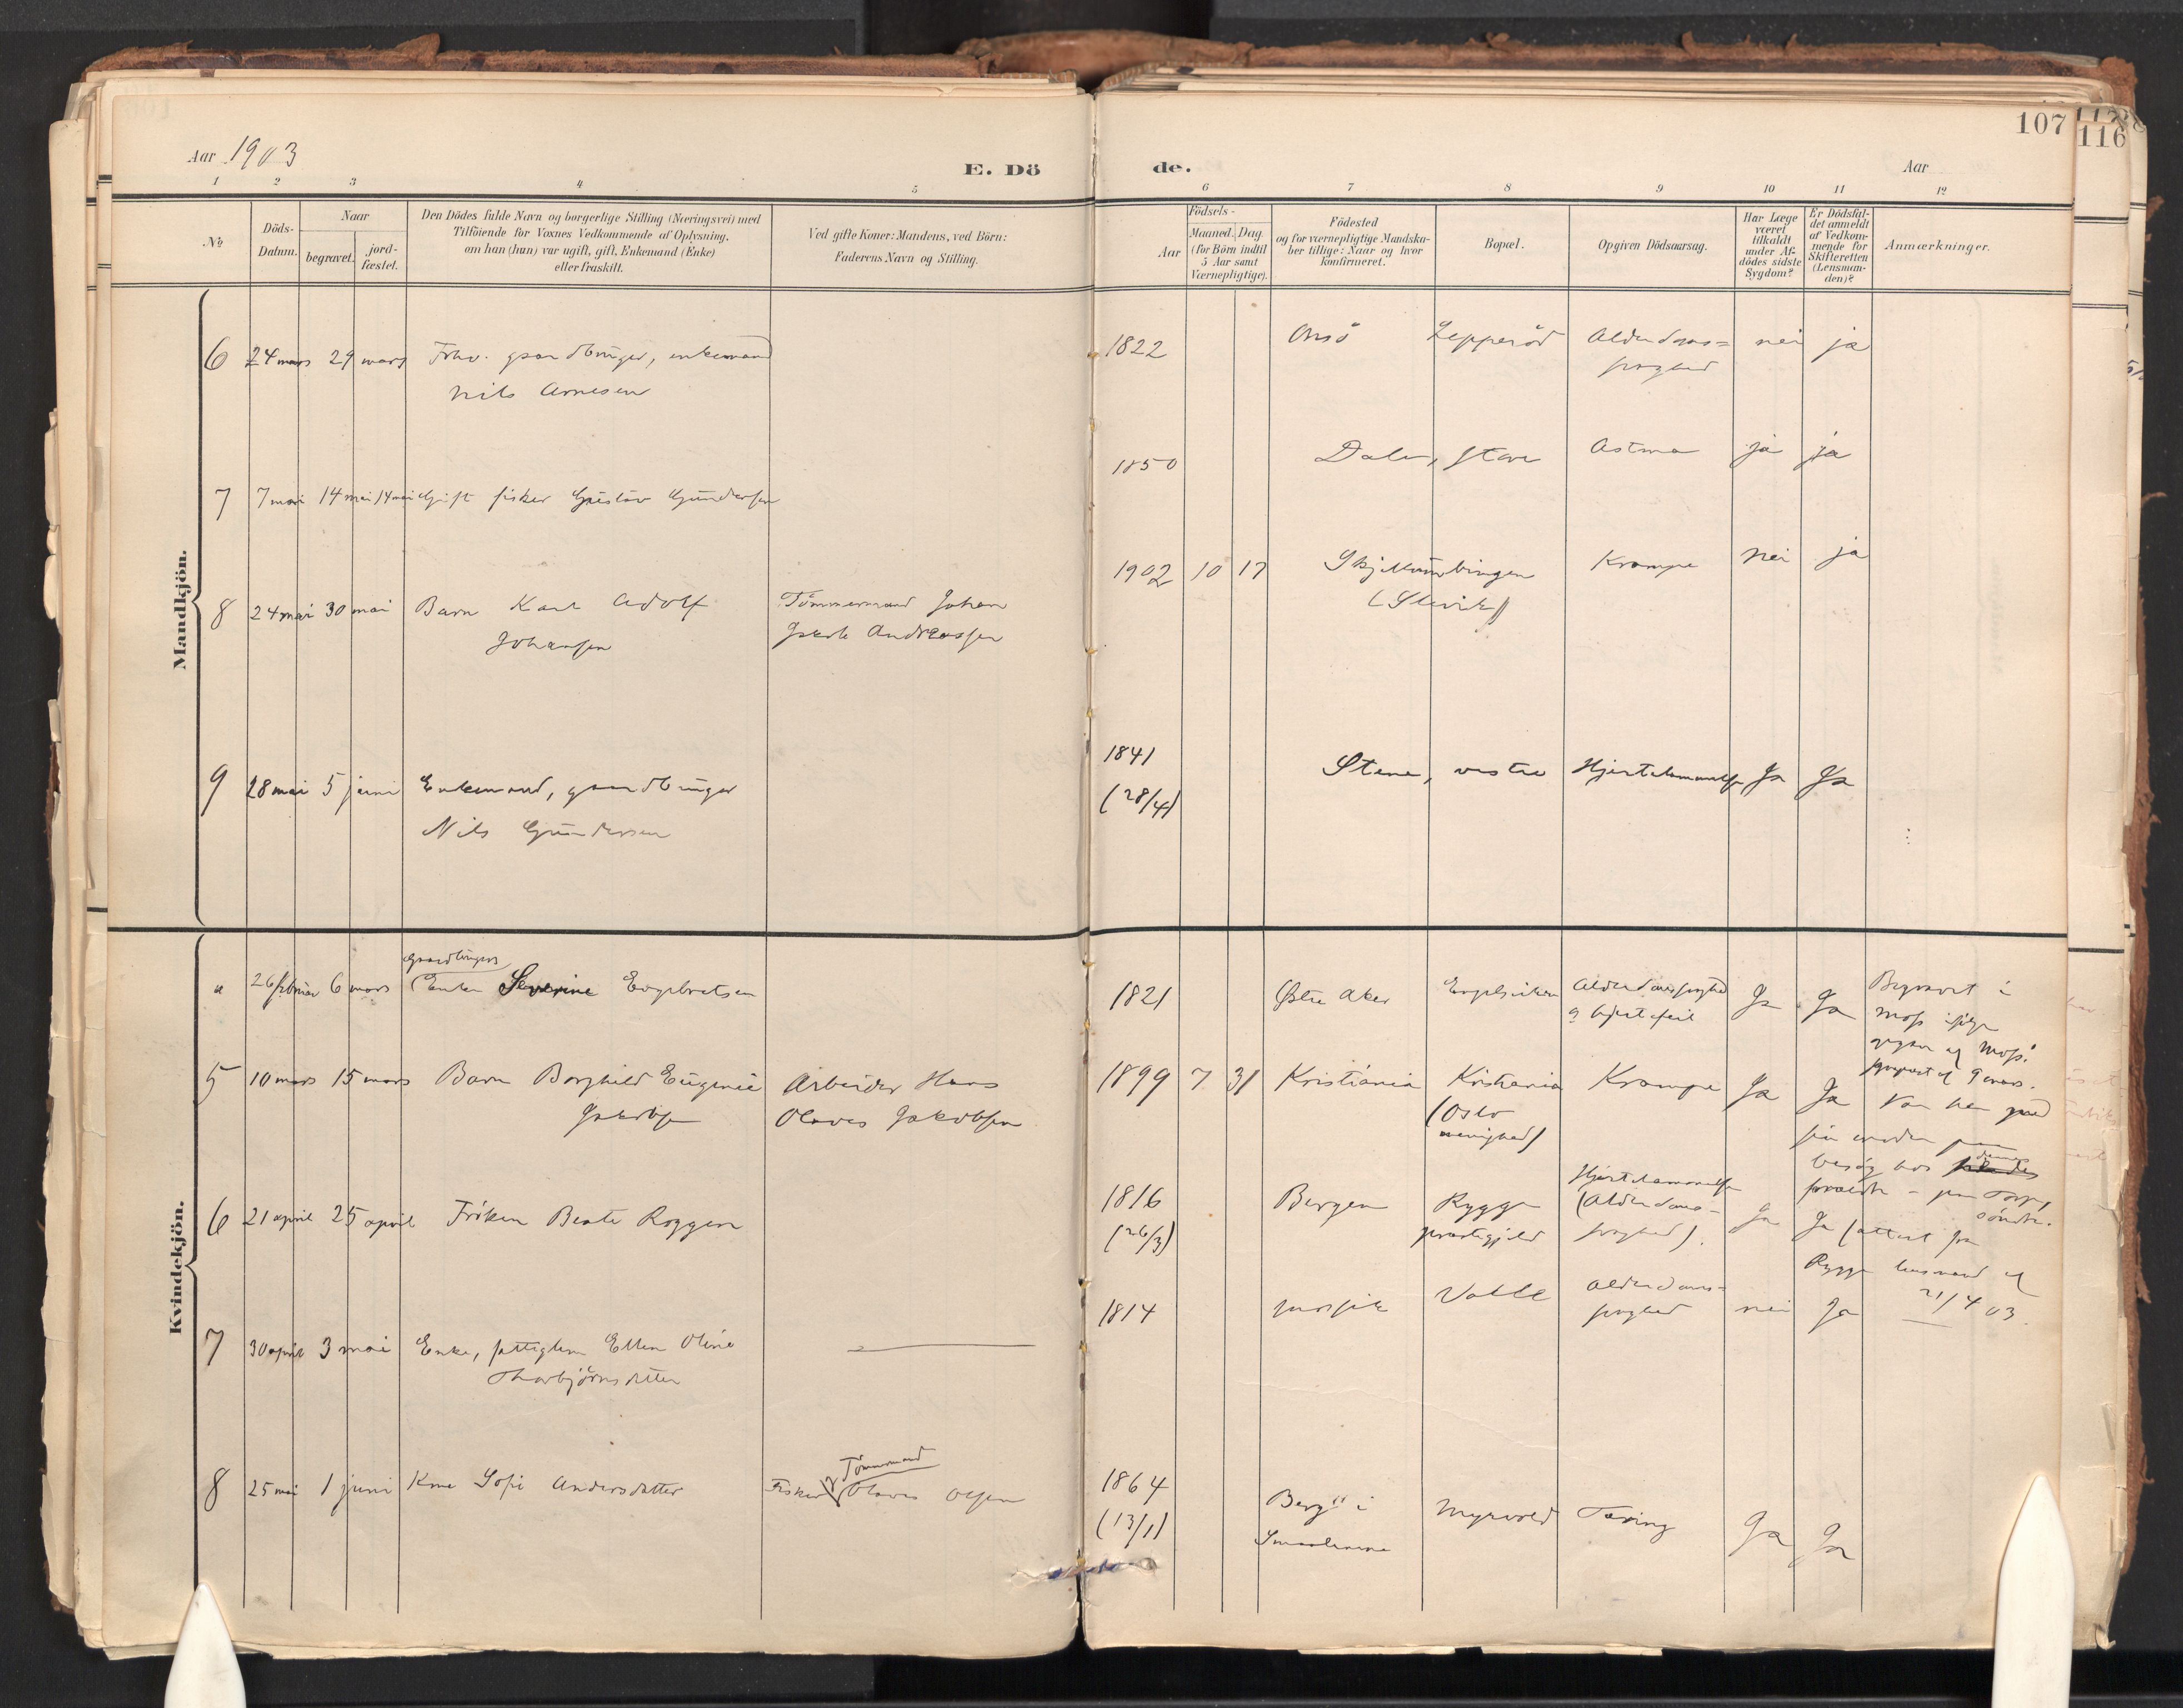 107
116
Aar 1903
E. Dö
de.
Aar
1 2 3 4 5
6 7 8 9 10 11 12
№
Döds-
Datum.
Naar
begravet.
jord-
fæstet.
Den Dödes fulde Navn og borgerlige Stilling (Næringsvei) med
Tilföiende for Voxnes Vedkommende af Oplysning,
om han (hun) var ugift, gift, Enkemand (Enke)
eller fraskilt.
Ved gifte Koner: Mandens, ved Börn:
Faderens Navn og Stilling.
Födsels-
Aar
Maaned. Dag.
(for Börn indtil
5 Aar samt
Værnepligtige).
Födested
og for værnepligtige Mandska-
ber tillige: Naar og hvor
konfirmeret.
Bopæl.
Opgiven Dödsaarsag.
Har Læge
været
tilkaldt
under Af-
dödes sidste
Sygdom?
Er Dödsfal-
det anmeldt
af Vedkom-
mende for
Skifteretten
(Lensman-
den)?
Anmærkninger.
Mandkjön.
6 24 mars 29 mars Fhv. gaardbruger, enkemand
Nils Arnesen
1822 Onsö Lepperöd Alderdoms=
svaghed
nei ja
7 7 mai 14 mai 14 mai Gift fisker Gustav Gundersen
1850 Dale, store Astma ja ja
8 24 mai 30 mai Barn Karl Adolf
Johansen
Tömmermand Johan
Jakob Andreassen
1902 10 17 Skjellumbingen
(Slevik)
Krampe nei ja
9 28 mai 5 juni Enkemand, gaardbruger
Nils Gundersen
1841
(28/4)
Stene, vestre Hjertelammelse Ja Ja
Kvindekjön.
4 26 februar 6 mars Gaardbrugers
Enke Severine Engebretsen
1821 Østre Aker Engelsviken Alderdomssvaghed
og hjertefeil
Ja Ja
Begravet i
Moss ifölge
af Moss
af 9 mars.
5 10 mars 15 mars Barn Borghild Eugenie
Jakobsen
Arbeider Hans
Olaves Jakobsen
1899 7 31 Kristiania Kristiania
(Oslo
menighed)
Krampe Ja Ja
Var her med
sin moder paa
besög hos dennes
forældre - paa Torp,
söndre.
6 21 april 25 april Fröken Beate Roggen
1816
(26/3)
Bergen Rygge
prestegjeld
Hjertelammelse
(Alderdoms-
svaghed).
Ja Ja (attest fra
Rygge lensmand af
21/4 03.
7 30 april 3 mai Enke, fattiglem Ellen Oline
Thorbjörnsdatter
1814 Valle Alderdoms-
svaghed
nei Ja
8 25 mai 1 juni Kone Sofie Andersdatter
Fisker Tömmermand
Olaves Olsen
1864
(13/1)
Berg i
Smaalenene
Myrvold Tæring Ja Ja